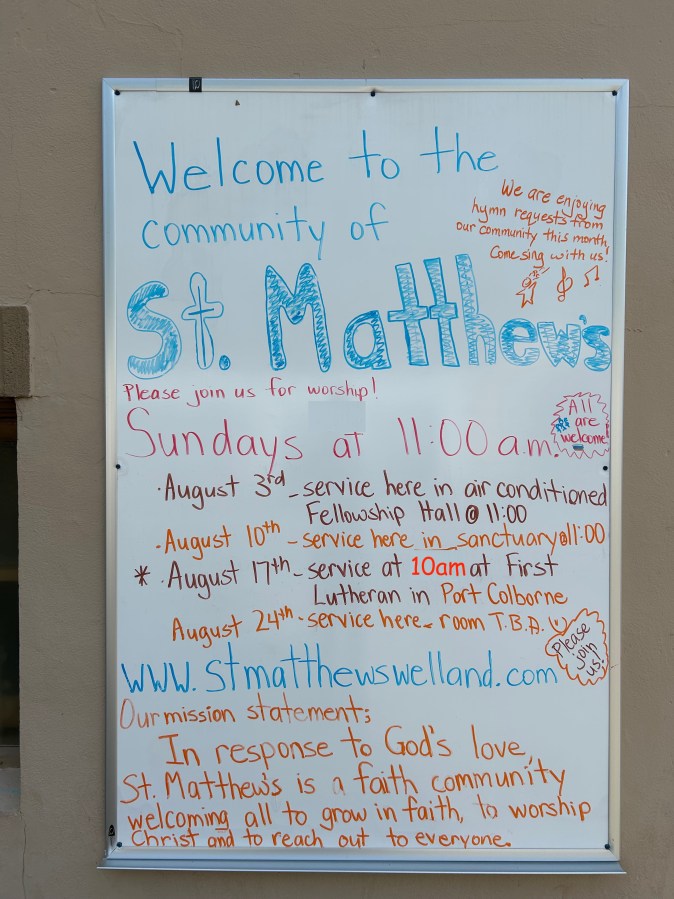 Welcome to the
community of
We are enjoying
hymn requests from
our community this month,
Come sing with us!
St. Matthew's
Please join us for worship!
Sundays at 11:00 a.m.
All
are
welcome!
·August 3rd - service here in air conditioned
Fellowship Hall @ 11:00
·August 10th - service here in sanctuary @ 11:00
* ·August 17th - service at 10am at First
Lutheran in Port Colborne
August 24th - service here - room T.B.A.
Please
join
us!
www.stmatthewswelland.com
Our mission statement:
In response to God's love,
St. Matthew's is a faith community
welcoming all to grow in faith, to worship
Christ and to reach out to everyone.